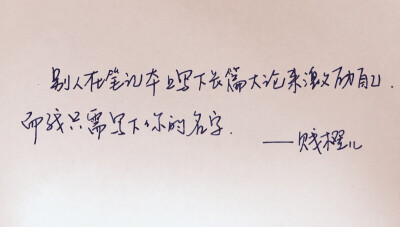 别人在笔记本上写下长篇大论来激励自己.
而我只需写下你的名字.
——贱橙儿